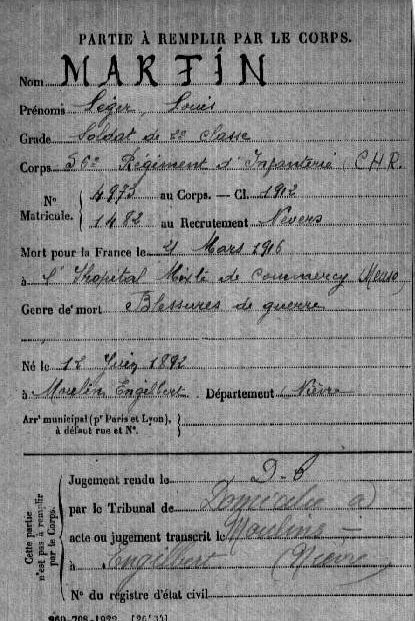 PARTIE À REMPLIR PAR LE CORPS.
Nom MARTIN
Prénoms Léger, Louis
Grade Soldat de 2e Classe
Corps 56e Régiment d'Infanterie (C.H.R.
N° Matricule. { 4973 au Corps. — Cl. 1912
1482 au Recrutement Nevers
Mort pour la France le 21 Mars 1916
à l'Hopital Mixte de Commercy (Meuse)
Genre de mort Blessures de guerre
Né le 12 Juin 1892
à Moulin Engilbert Département Nièvre
Arrt municipal (pr Paris et Lyon), }
à défaut rue et N°.
Cette partie n'est pas à remplir par le Corps.
Jugement rendu le D.P
par le Tribunal de Domicilié à
acte ou jugement transcrit le Moulins-
à Engilbert (Nièvre)
N° du registre d'état civil